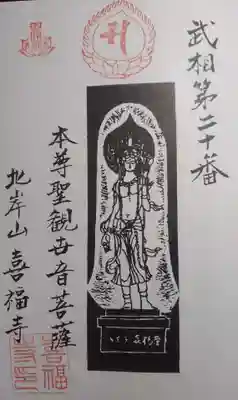 武相第二十番
本尊聖観世音菩薩
北岸山喜福寺